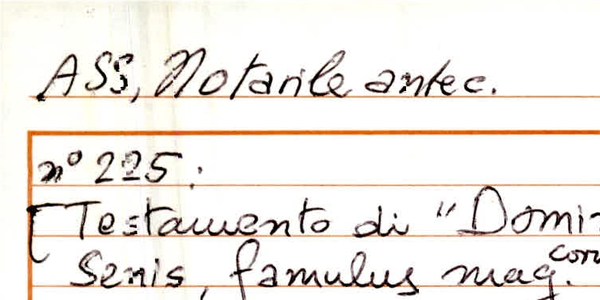 ASS, Notarile antec.
n° 225:
[Testamento di "Domi-
Senis, famulus mag. com